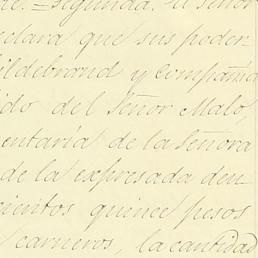 de. = Segunda. El Señor
clara que sus poder-
ildebrand y compañía
ido del Señor Malo,
entaría de la Señora
de la expresada deu-
cientos quince pesos
carneros, la cantidad